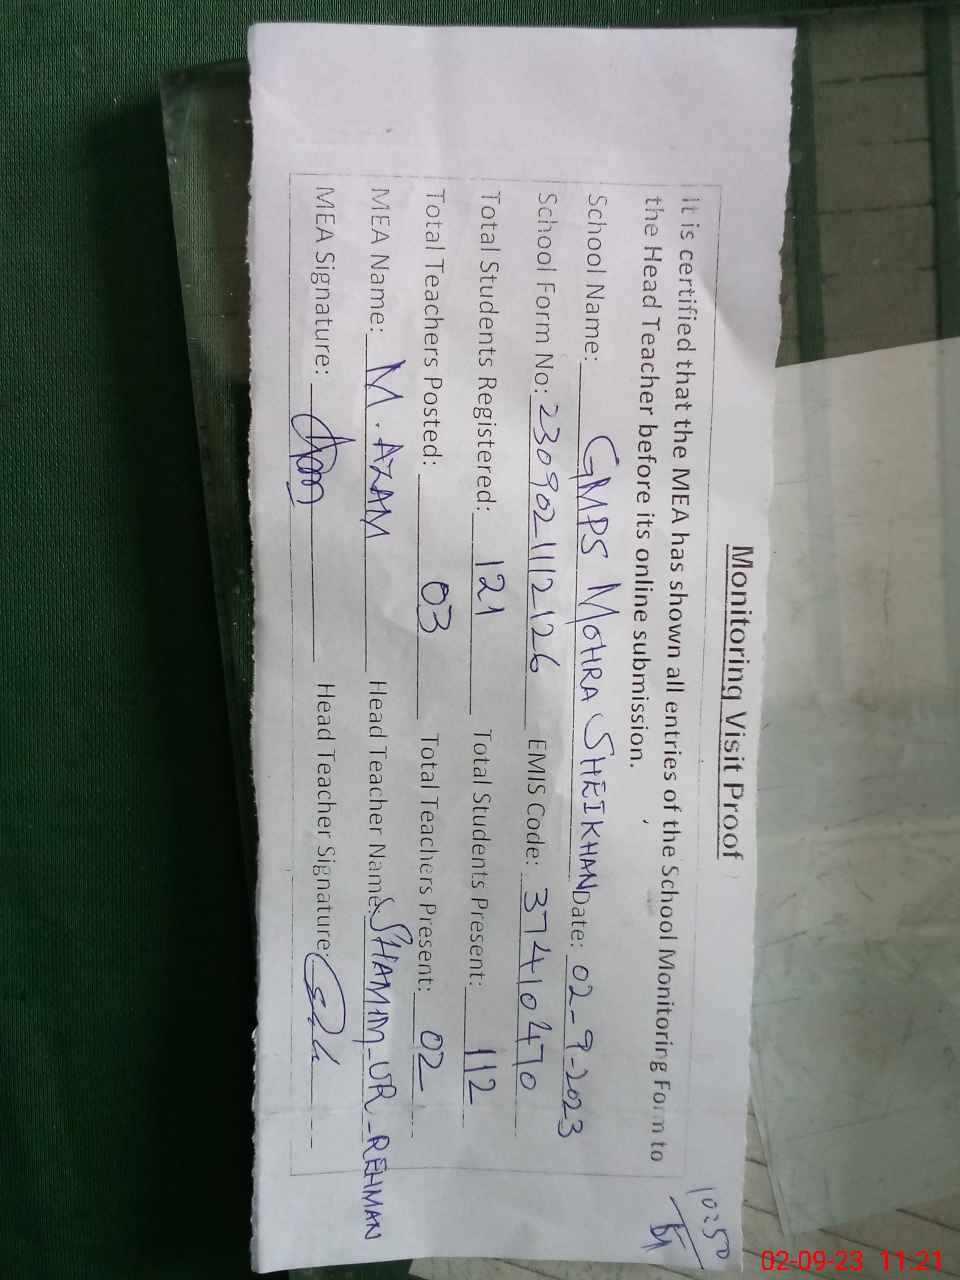 Monitoring Visit Proof
It is certified that the MEA has shown all entries of the School Monitoring Form to
the Head Teacher before its online submission.
School Name: GMPS MOHRA SHEIKHAN Date: 02-9-2023
School Form No: 2309021112126 EMIS Code: 37410470
Total Students Registered: 121 Total Students Present: 112
Total Teachers Posted: 03 Total Teachers Present: 02
MEA Name: M. AZAM Head Teacher Name: SHAMIM-UR-REHMAN
MEA Signature: Head Teacher Signature:
10250
02-09-23 11:21